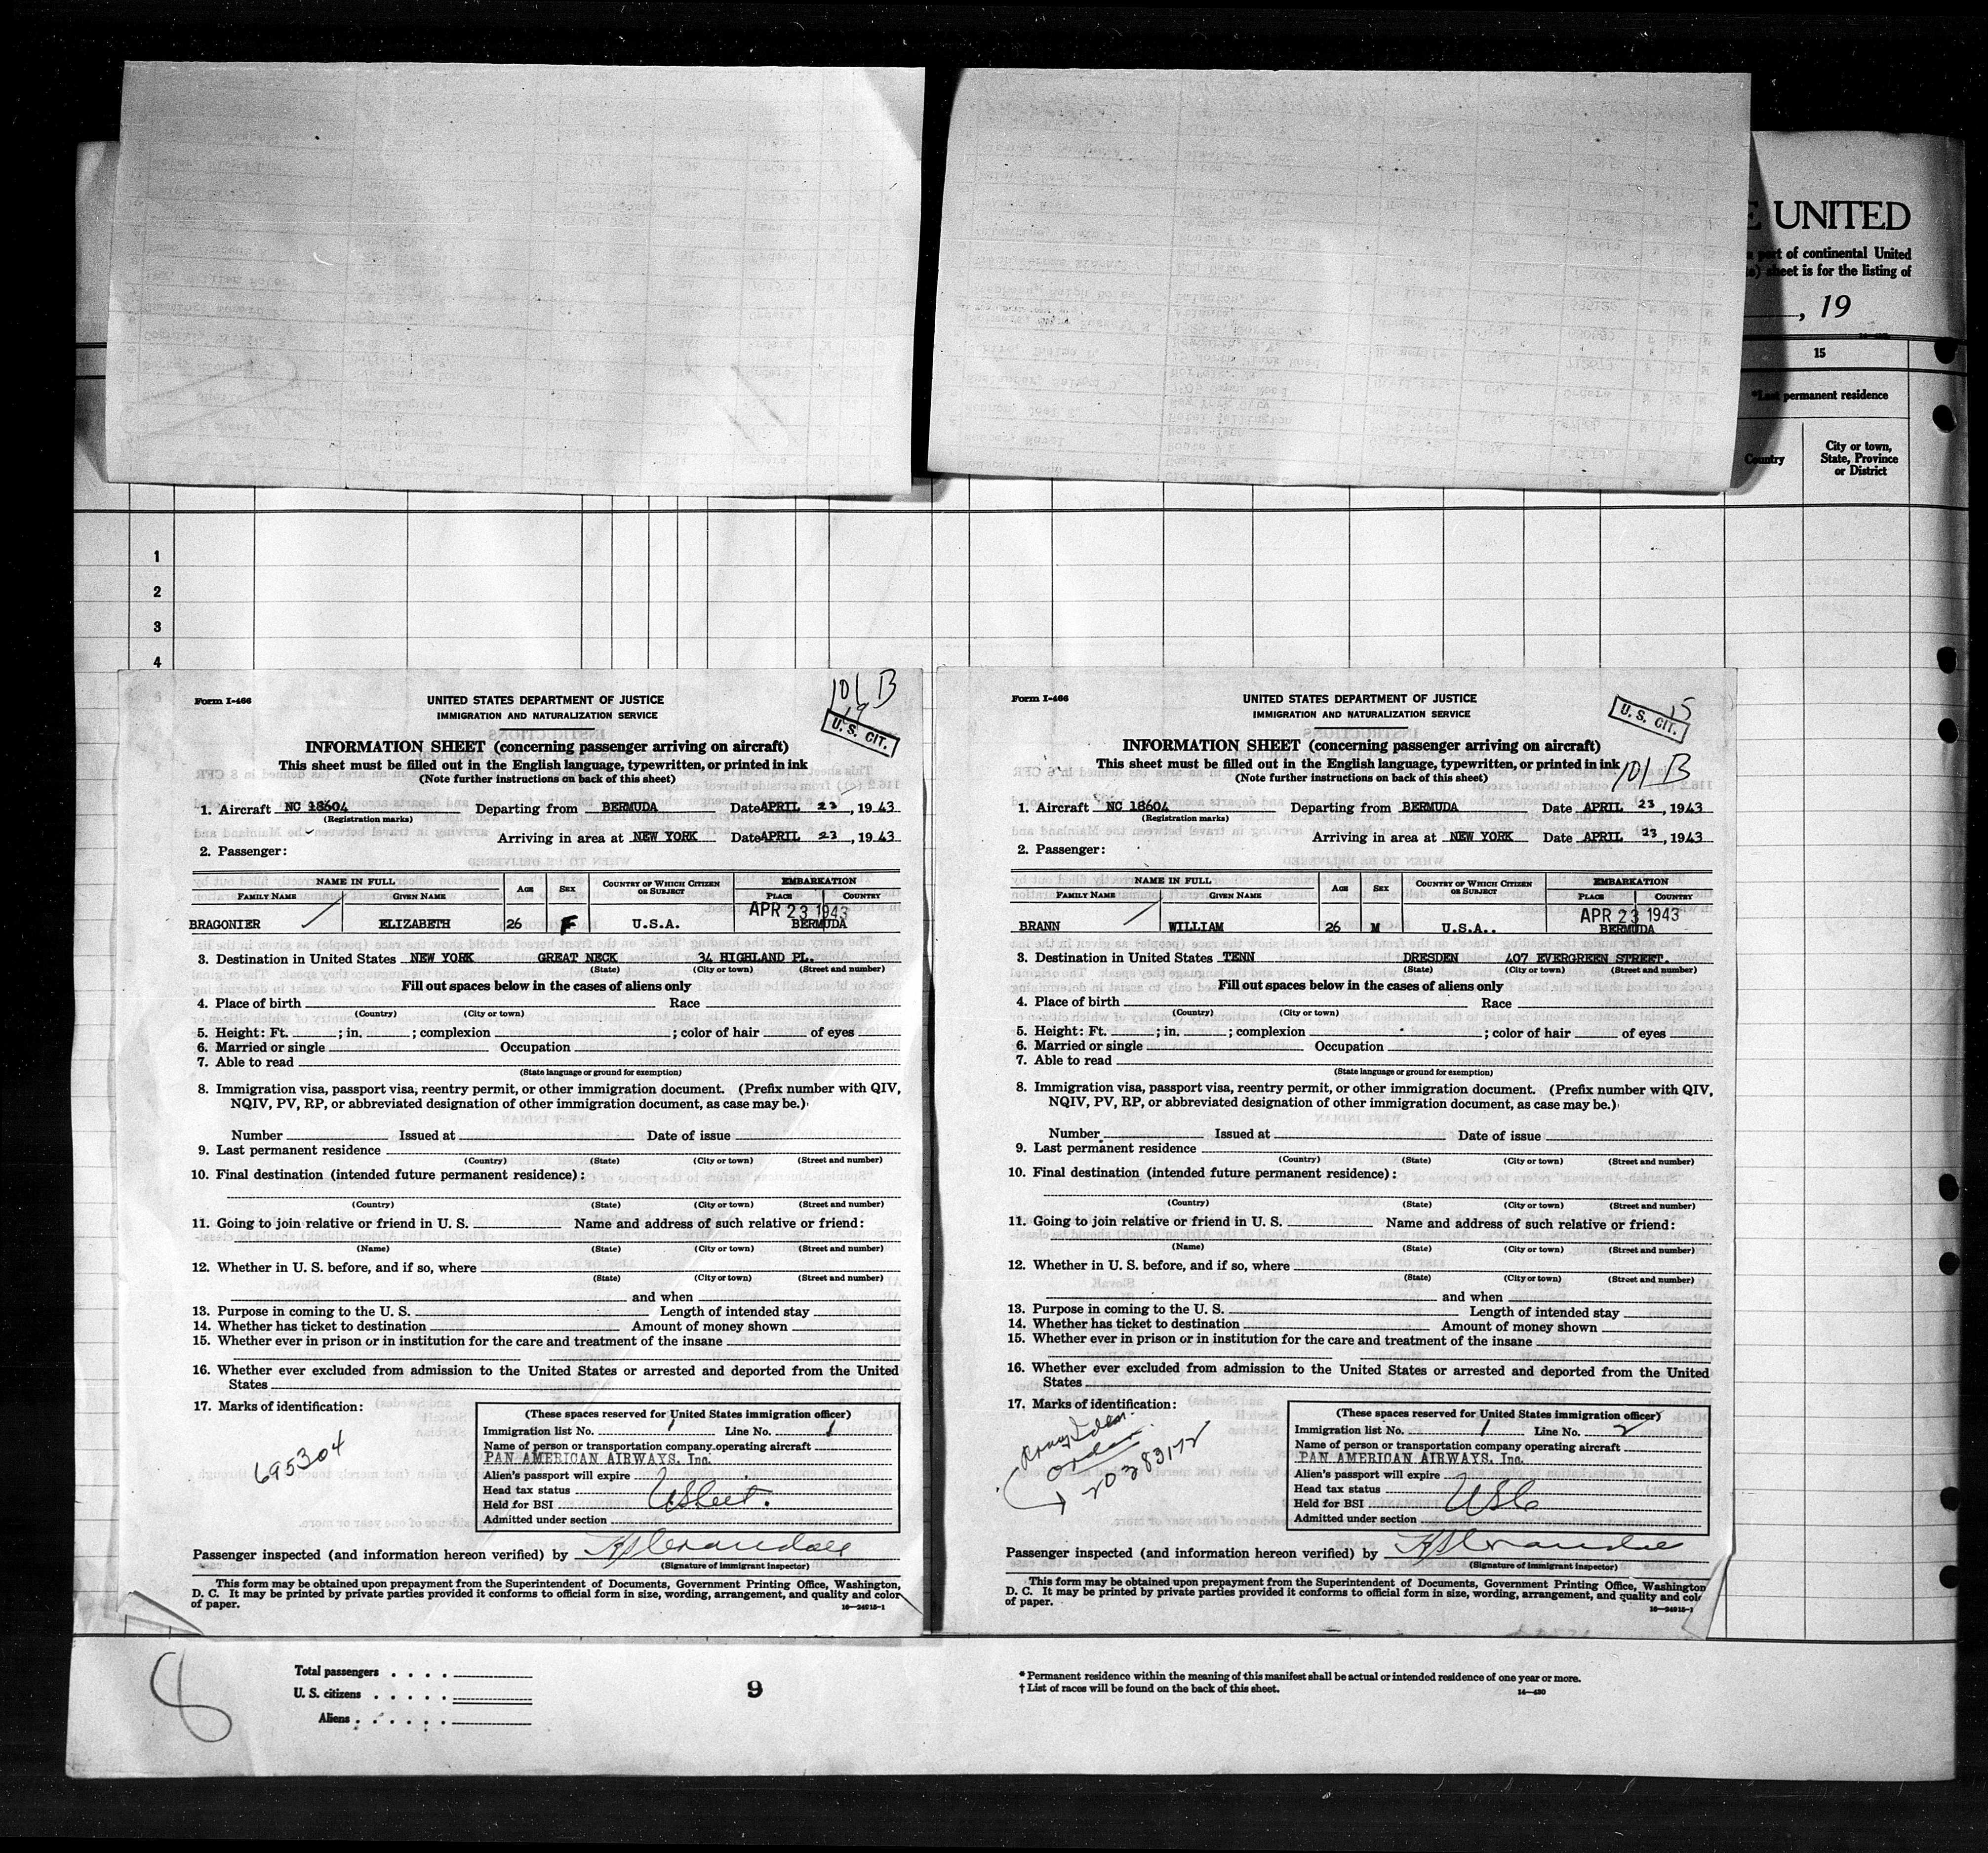 E UNITED
a part of continental United
sheet is for the listing of
, 19
15
*Last permanent residence
Country
City or town,
State, Province
or District
1
2
3
4
Form I-466
UNITED STATES DEPARTMENT OF JUSTICE
IMMIGRATION AND NATURALIZATION SERVICE
101 B
U. S. CIT.
INFORMATION SHEET (concerning passenger arriving on aircraft)
This sheet must be filled out in the English language, typewritten, or printed in ink
(Note further instructions on back of this sheet)
1. Aircraft NC 18604 Departing from BERMUDA Date APRIL 23, 1943
(Registration marks)
Arriving in area at NEW YORK Date APRIL 23, 1943
2. Passenger:
NAME IN FULL
FAMILY NAME GIVEN NAME AGE SEX COUNTRY OF WHICH CITIZEN OR SUBJECT EMBARKATION
PLACE COUNTRY
APR 23 1943
BRAGONIER ELIZABETH 26 F U.S.A. BERMUDA
3. Destination in United States NEW YORK GREAT NECK 34 HIGHLAND PL.
(State) (City or town) (Street and number)
Fill out spaces below in the cases of aliens only
4. Place of birth Race
(Country) (City or town)
5. Height: Ft. ; in. ; complexion ; color of hair of eyes
6. Married or single Occupation
7. Able to read
(State language or ground for exemption)
8. Immigration visa, passport visa, reentry permit, or other immigration document. (Prefix number with QIV,
NQIV, PV, RP, or abbreviated designation of other immigration document, as case may be.)
Number Issued at Date of issue
9. Last permanent residence
(Country) (State) (City or town) (Street and number)
10. Final destination (intended future permanent residence):
(Country) (State) (City or town) (Street and number)
11. Going to join relative or friend in U. S. Name and address of such relative or friend:
(Name) (State) (City or town) (Street and number)
12. Whether in U. S. before, and if so, where
(State) (City or town) (Street and number)
and when
13. Purpose in coming to the U. S. Length of intended stay
14. Whether has ticket to destination Amount of money shown
15. Whether ever in prison or in institution for the care and treatment of the insane
16. Whether ever excluded from admission to the United States or arrested and deported from the United
States
17. Marks of identification:
695304
(These spaces reserved for United States immigration officer)
Immigration list No. 1 Line No. 1
Name of person or transportation company operating aircraft
PAN AMERICAN AIRWAYS, Inc.
Alien's passport will expire
Head tax status
Held for BSI
Admitted under section
Passenger inspected (and information hereon verified) by
(Signature of immigrant inspector)
This form may be obtained upon prepayment from the Superintendent of Documents, Government Printing Office, Washington,
D. C. It may be printed by private parties provided it conforms to official form in size, wording, arrangement, and quality and color
of paper.
16—24915-1
Form I-466
UNITED STATES DEPARTMENT OF JUSTICE
IMMIGRATION AND NATURALIZATION SERVICE
15
U. S. CIT.
INFORMATION SHEET (concerning passenger arriving on aircraft)
This sheet must be filled out in the English language, typewritten, or printed in ink
101 B
(Note further instructions on back of this sheet)
1. Aircraft NC 18604 Departing from BERMUDA Date APRIL 23, 1943
(Registration marks)
Arriving in area at NEW YORK Date APRIL 23, 1943
2. Passenger:
NAME IN FULL
FAMILY NAME GIVEN NAME AGE SEX COUNTRY OF WHICH CITIZEN OR SUBJECT EMBARKATION
PLACE COUNTRY
APR 23 1943
BRANN WILLIAM 26 M U.S.A.. BERMUDA
3. Destination in United States TENN DRESDEN 407 EVERGREEN STREET.
(State) (City or town) (Street and number)
Fill out spaces below in the cases of aliens only
4. Place of birth Race
(Country) (City or town)
5. Height: Ft. ; in. ; complexion ; color of hair of eyes
6. Married or single Occupation
7. Able to read
(State language or ground for exemption)
8. Immigration visa, passport visa, reentry permit, or other immigration document. (Prefix number with QIV,
NQIV, PV, RP, or abbreviated designation of other immigration document, as case may be.)
Number Issued at Date of issue
9. Last permanent residence
(Country) (State) (City or town) (Street and number)
10. Final destination (intended future permanent residence):
(Country) (State) (City or town) (Street and number)
11. Going to join relative or friend in U. S. Name and address of such relative or friend:
(Name) (State) (City or town) (Street and number)
12. Whether in U. S. before, and if so, where
(State) (City or town) (Street and number)
and when
13. Purpose in coming to the U. S. Length of intended stay
14. Whether has ticket to destination Amount of money shown
15. Whether ever in prison or in institution for the care and treatment of the insane
16. Whether ever excluded from admission to the United States or arrested and deported from the United
States
17. Marks of identification:
(These spaces reserved for United States immigration officer)
Immigration list No. 1 Line No. 2
Name of person or transportation company operating aircraft
PAN AMERICAN AIRWAYS, Inc.
Alien's passport will expire
Head tax status
Held for BSI USC
Admitted under section
Passenger inspected (and information hereon verified) by
(Signature of immigrant inspector)
This form may be obtained upon prepayment from the Superintendent of Documents, Government Printing Office, Washington
D. C. It may be printed by private parties provided it conforms to official form in size, wording, arrangement, and quality and
of paper.
16—24915-1
8
Total passengers
U. S. citizens
Aliens
9
* Permanent residence within the meaning of this manifest shall be actual or intended residence of one year or more.
† List of races will be found on the back of this sheet.
14—430